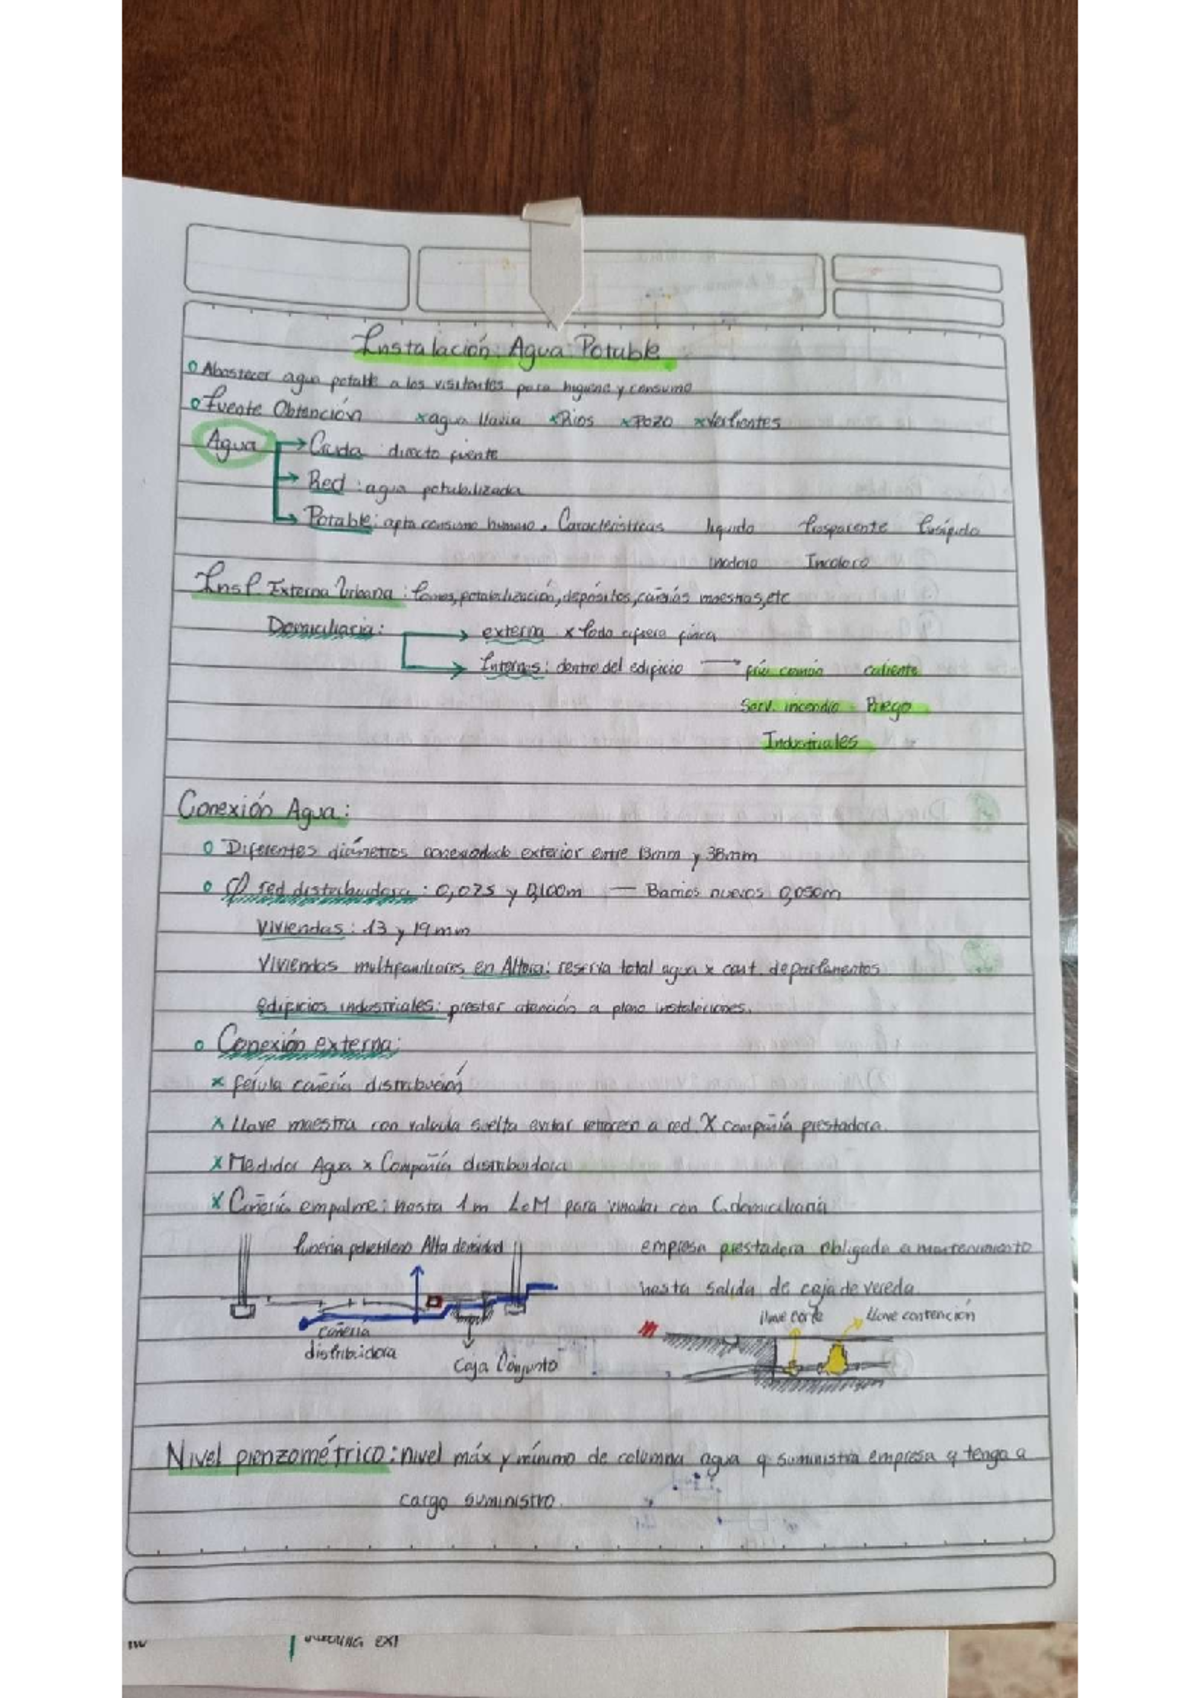 Instalación Agua Potable
o Abastecer agua potable a los visitantes para higiene y consumo
o Fuente Obtención x agua lluvia x Rios x Pozo x Vertientes
Agua → Cruda: directo fuente
→ Red: agua potabilizada
→ Potable: apta consumo humano. Características liquido Trasparente Insípido
inodoro Incoloro
Inst. Externa Urbana: tomas, potabilización, depósitos, cañrías maestras, etc
Domiciliaria: → externa x fuera finca
→ Internas: dentro del edificio → fría común caliente
Serv. incendio - Riego
Industriales
Conexión Agua:
o Diferentes diámetros exterior entre 13mm y 38mm
o Ø red distribuidora: 0,075 y 0,100m — Barrios nuevos 0,050m
Viviendas: 13 y 19 mm
Viviendas multifamiliares en Altura: reserva total agua x cant. departamentos
Edificios industriales: prestar atención a plano instalaciones.
o Conexión externa:
x ferula cañería distribución
x Llave maestra con valvula suelta evitar retroceso a red. X compañía prestadora.
x Medidor Agua x Compañía distribuidora
x Cañería empalme: hasta 1m LM para vincular con C. domiciliaria
polietileno Alta densidad
empresa prestadora obligada a mantenimiento
hasta salida de caja de vereda
llave corte
llave contención
cañería
distribuidora
Caja Conjunto
Nivel piezométrico: nivel máx y mínimo de columna agua q suministra empresa q tenga a
cargo suministro.
EXT